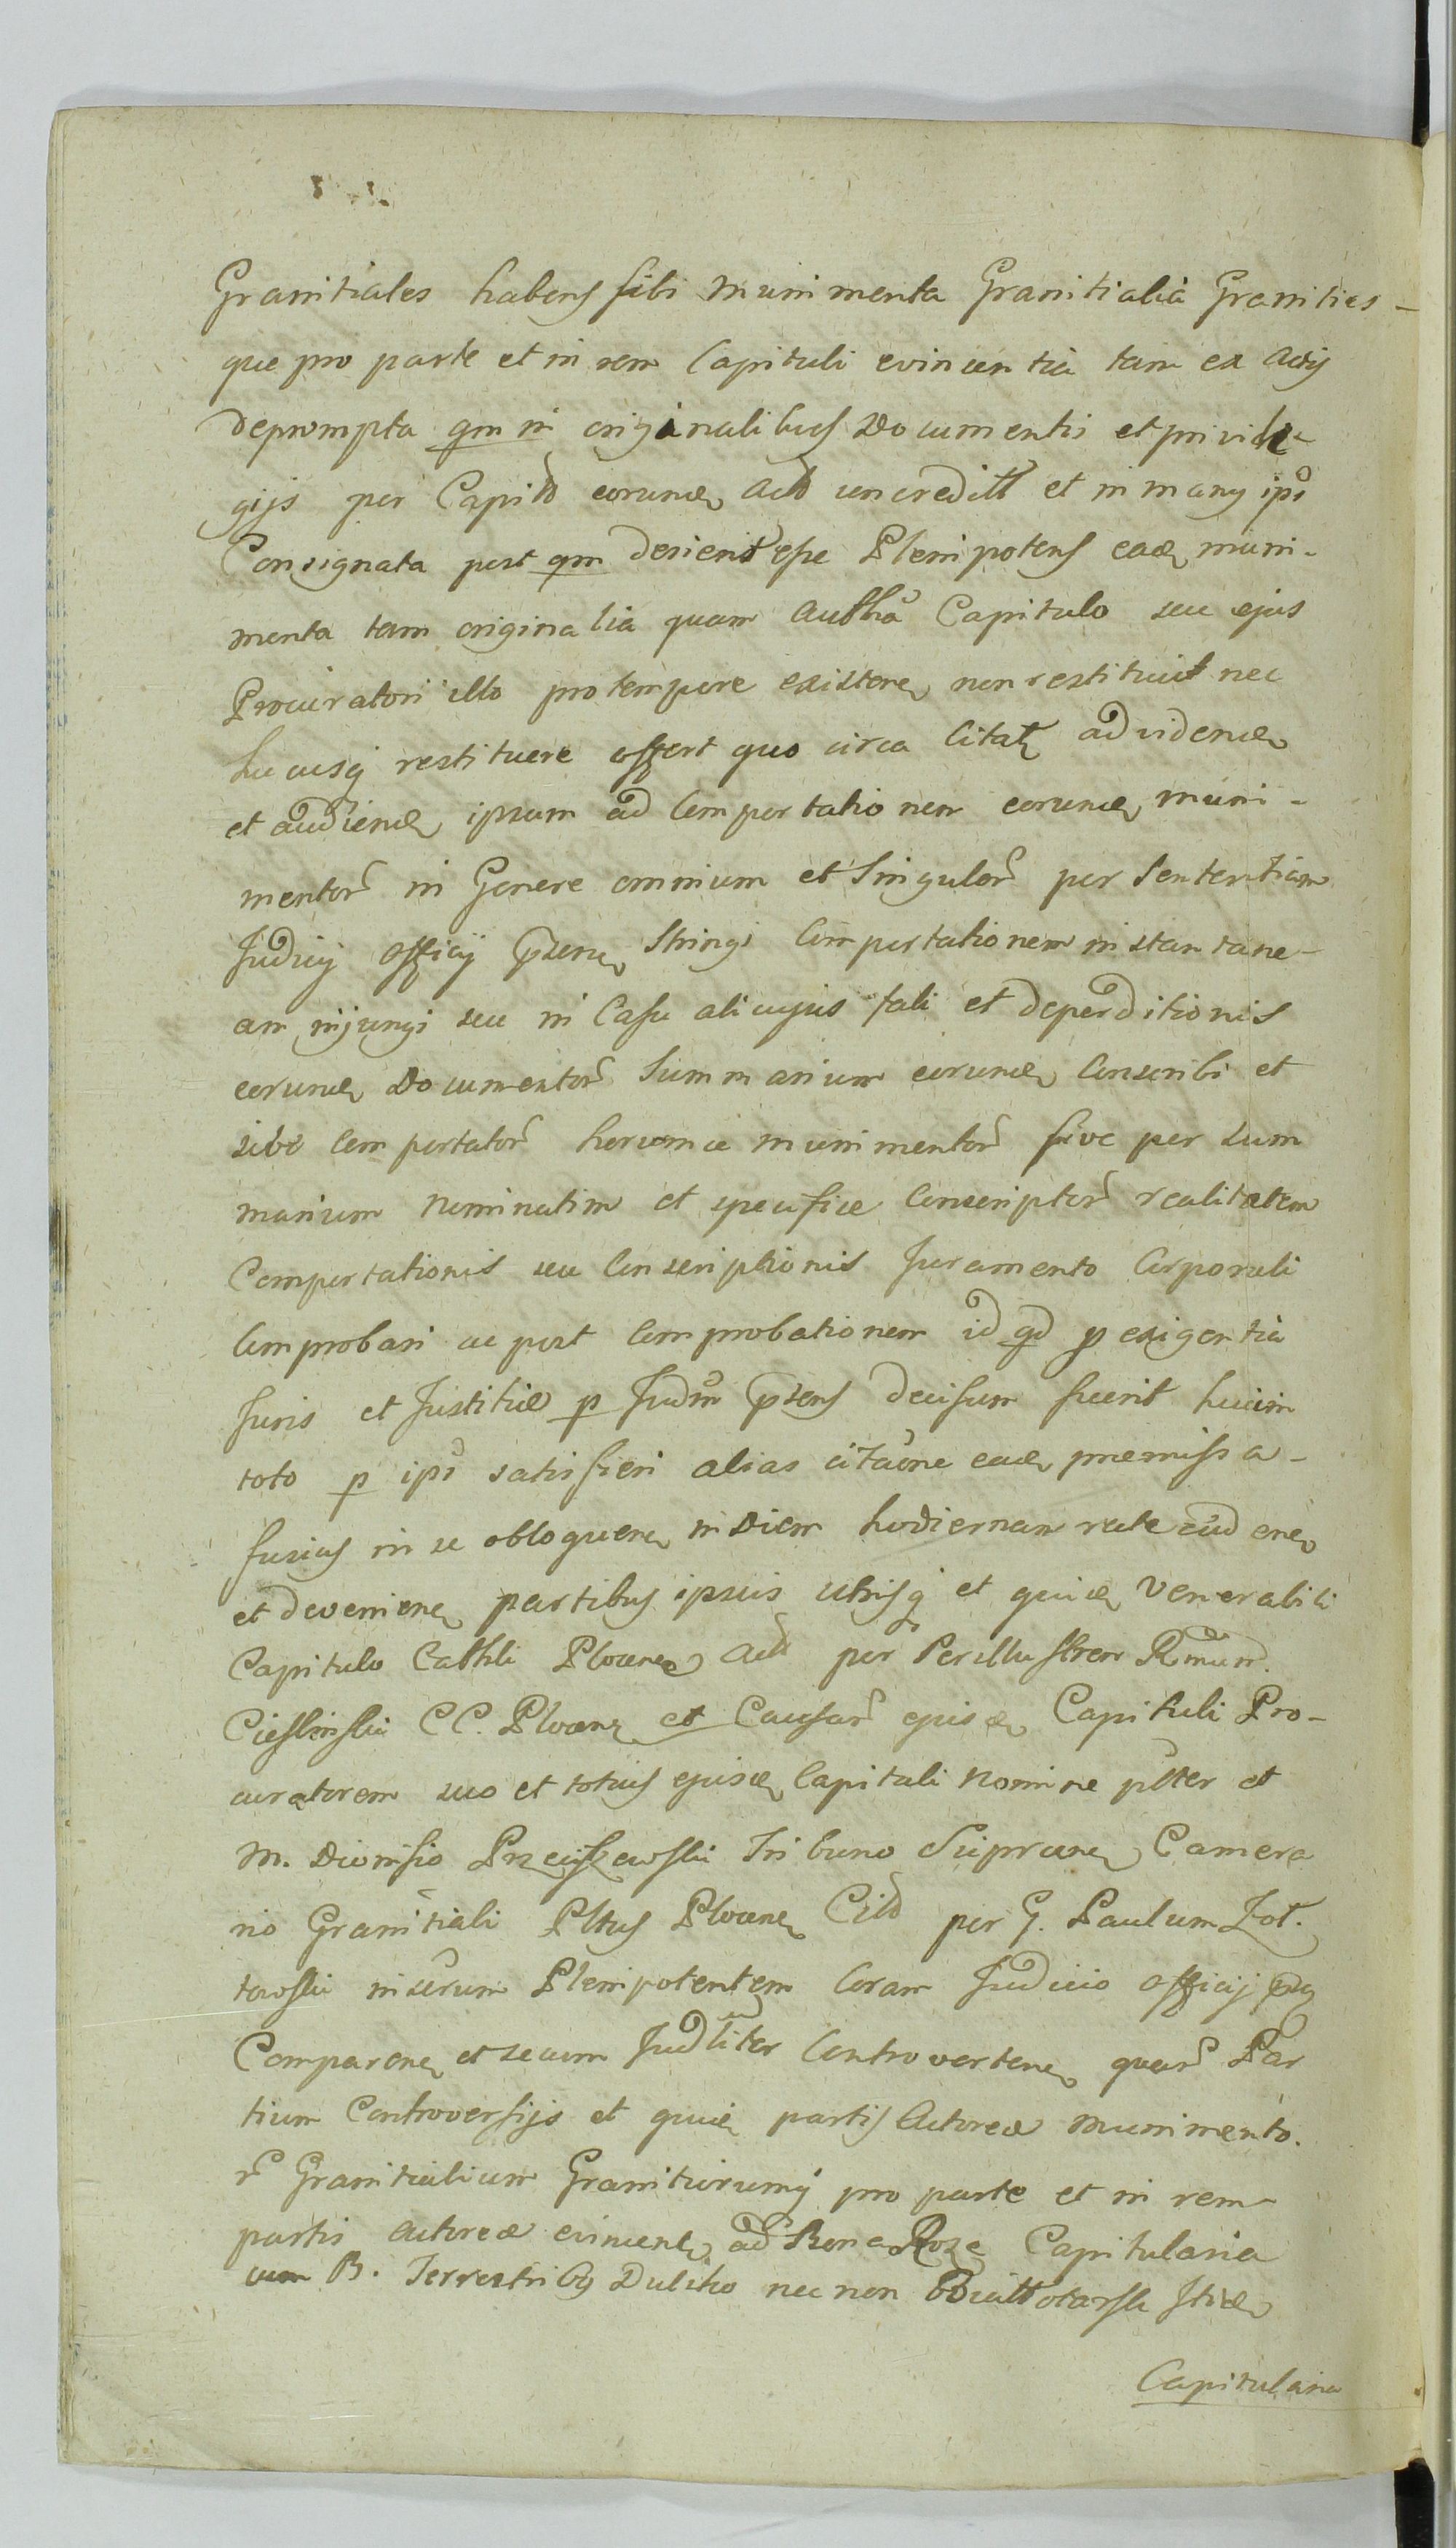 Granitiales habens sibi munimenta Granitialia Granities-
que pro parte et in rem Capituli evincentia tam ex actis
deprompta qm in originalibus Documentis et privile
gijs per Capitd eorunde Actd concreditt et in manus ipsi
Consignata post qm desierit esse Plenipotens eade muni-
menta tam originalia quam Autthca Capitulo seu ejus
Procuratori illo pro tempore existene non restituit nec
hucusq restituere offert quo circa Citat ad videnda
et audienda ipsum ad Comportationem eorunde muni-
mentor in Genere omnium et Singulor per Sententiam
Judicij officij psens Stringi Comportationem instantane-
am injungi seu in Casu alicujus fali et deperditionis
eorunde Documentor Summarium eorunde Conscribi et
sive Comportator horumce munimentor sive per sum
marium nominatim et specifice Conscriptor realitatem
Comportationis seu Conscriptionis Juramento Corporali
Comprobari ac post Comprobationem id qd p exigentia
Juris et Justitiæ p Judm psens decisum fuerit huic in
toto p ipsi satisfieri alias citaone eade præmissa-
fusius in se obloquene in Diem hodiernam recte cadene
et deveniene partibus ipsis utrisq et quide Venerabili
Capitulo Cathli Plocene Actd per Perillustrem Rmum
Cieslinski CC. Plocens et Causar ejusde Capituli Pro-
curatorem suo et totius ejusde Capituli nomine ptter et
M. Dionisio Przeciszewski Tribuno Suprocene Camera
rio Granitiali Pltus Plocene Citd per G. Paulum Zot.
towski inscrum Plenipotentem Coram Judicio officij psg
Comparene et secum Judliter Controvertene quar Par
tium Controversijs et quide partis Actoreæ munimento.
r Granitialium Granitiorumq pro parte et in rem
partis Actoreæ evincent ad Bona Roze Capitularia
cum B. Terrestribus Dulsko nec non Stide
Capitularia